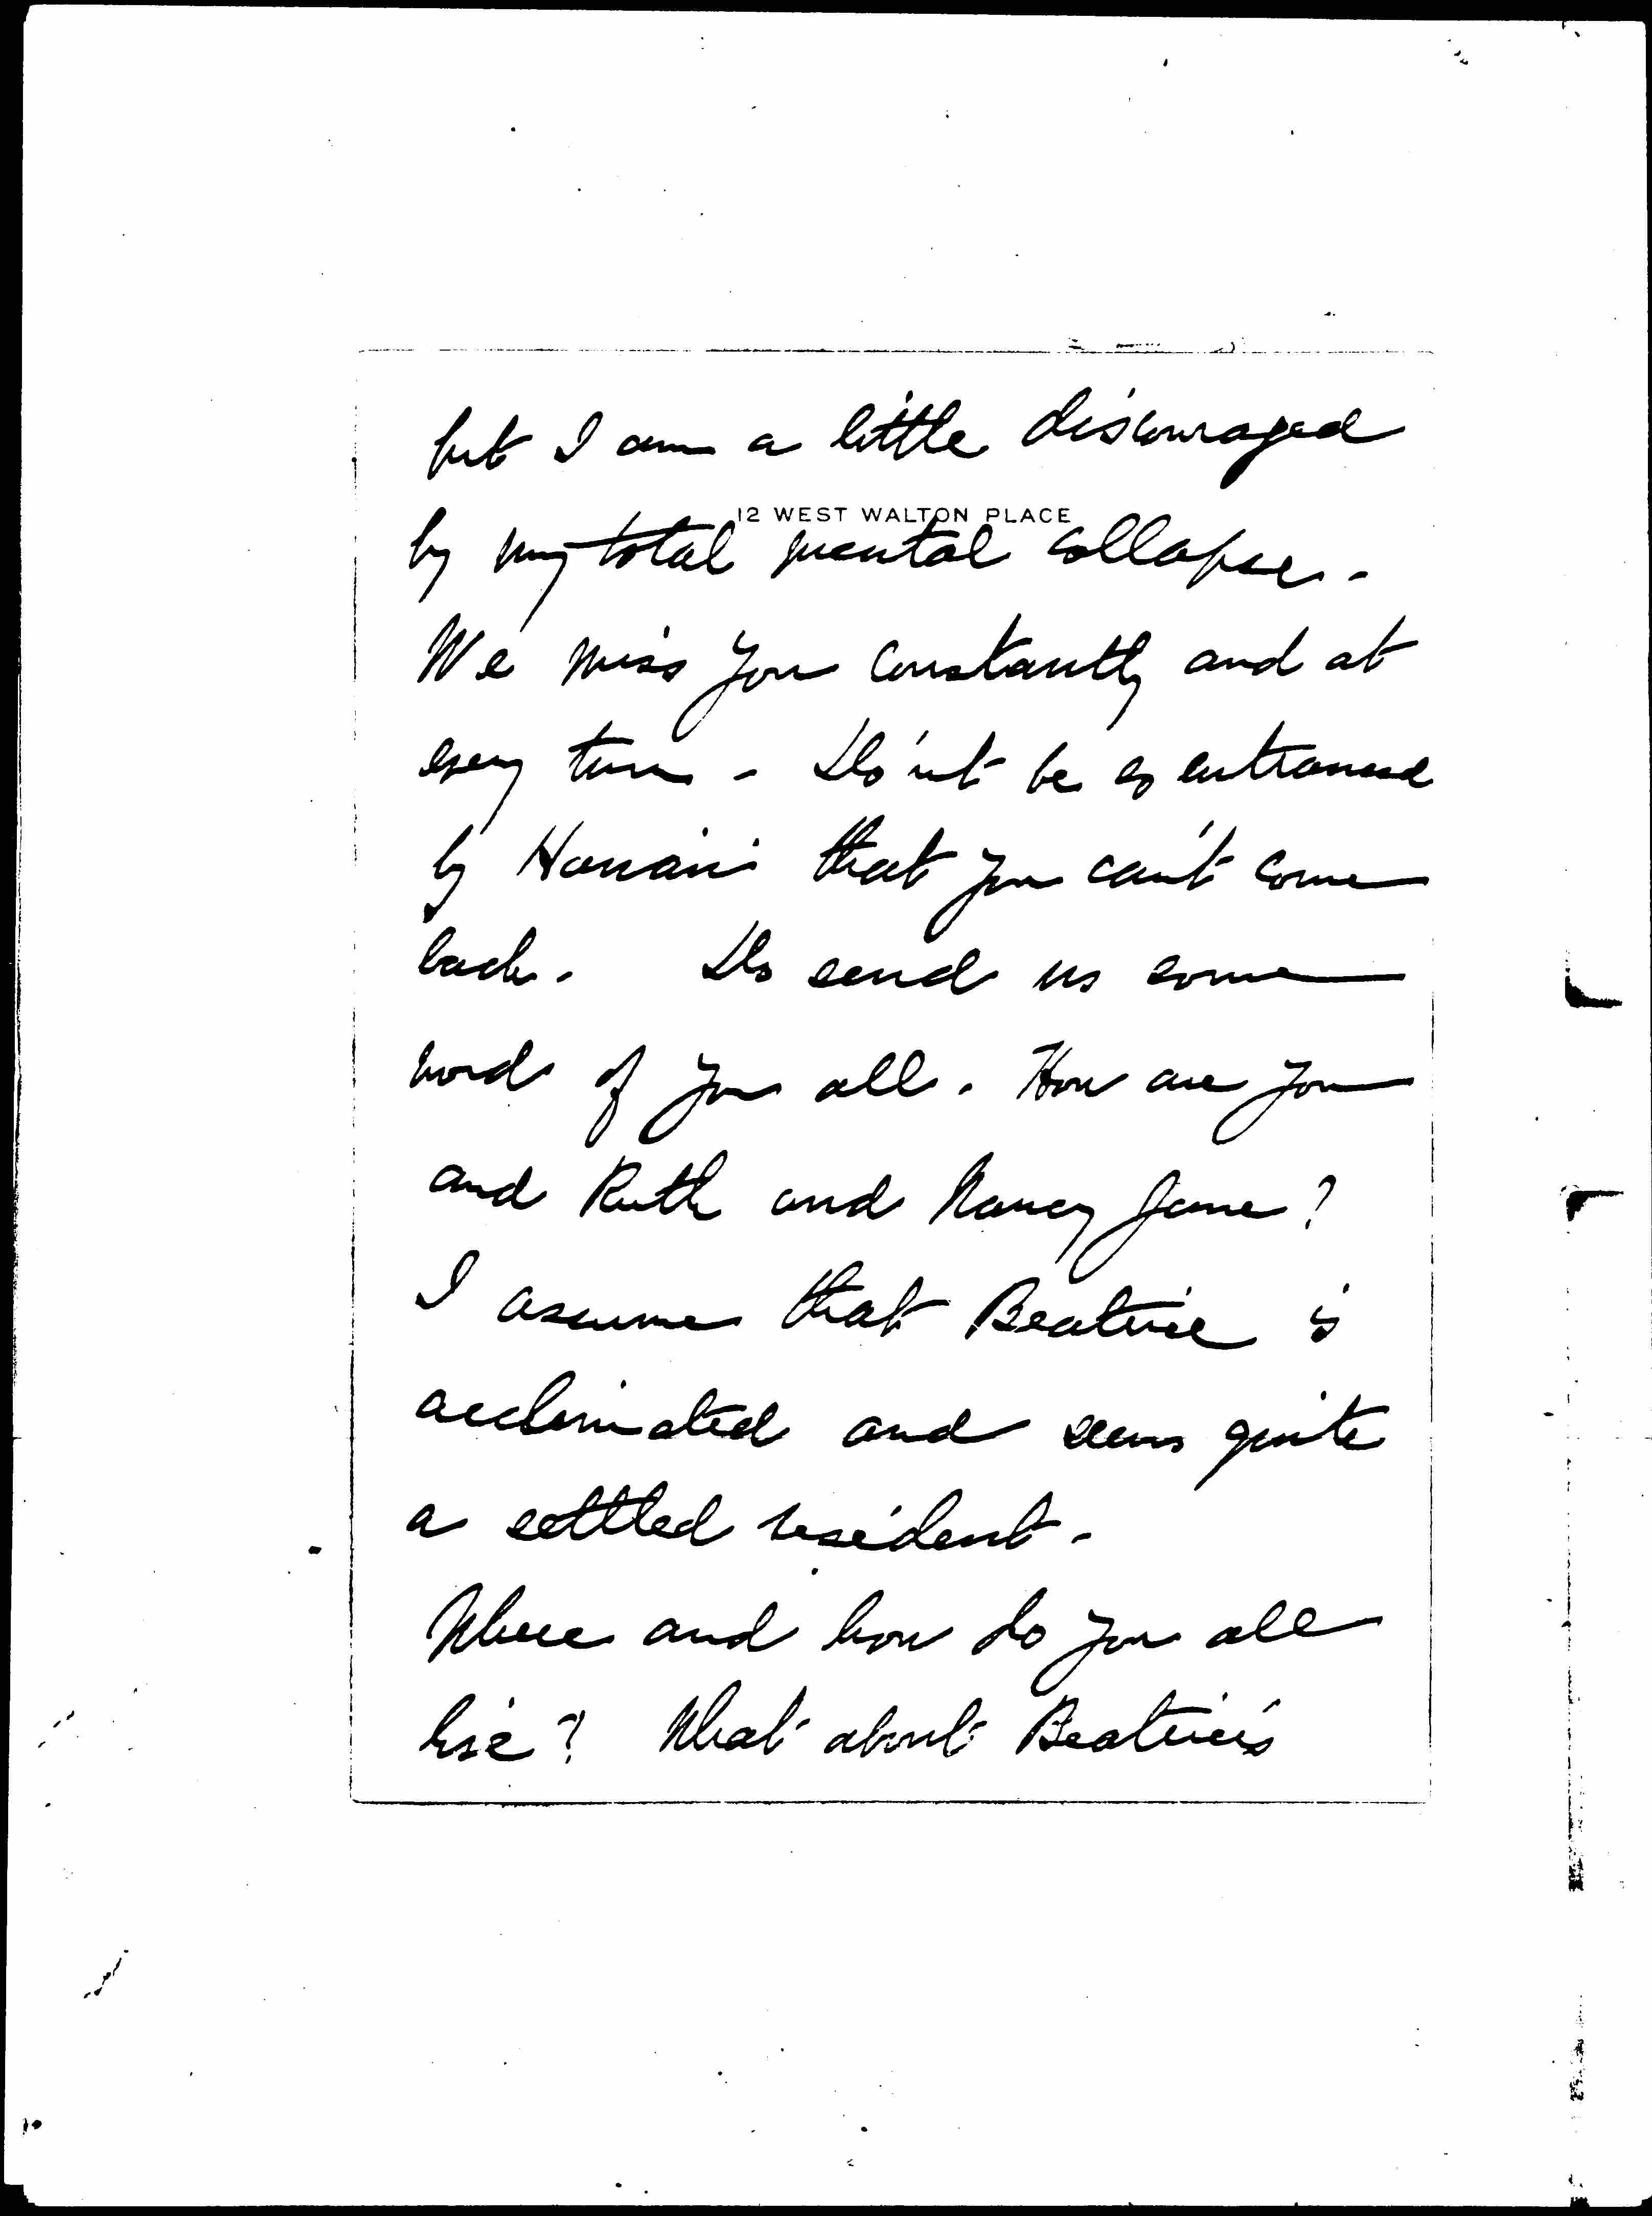 but I am a little discouraged
12 WEST WALTON PLACE
by my total mental collapse.
We miss you constantly and at
every turn - Do'nt be so entranced
by Hawaii that you can't come
back. Do send us some
word of you all. How are you
and Ruth and Nancy Jane?
I assume that Beatrice is
acclimated and seems quite
a settled resident.
Where and how do you all
live? What about Beatrice's